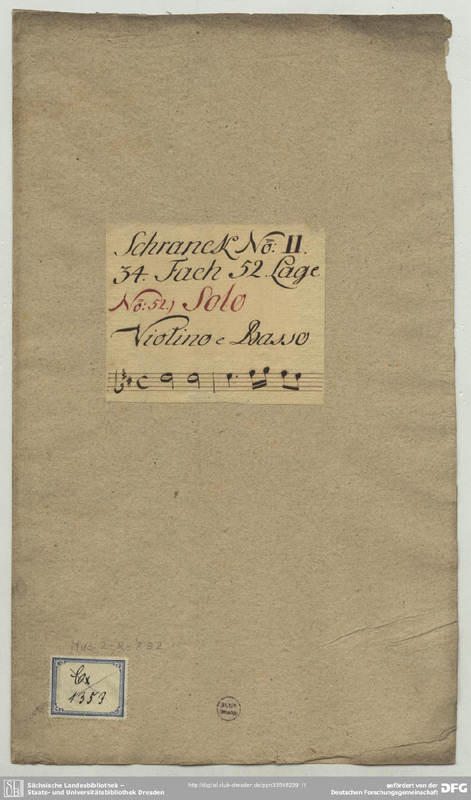 Schranck No: II.
34. Fach 52. Lage
No: 52.) Solo
Violino e Basso
Mus. 2-R-8,82
Cx
1353
Sächsische Landesbibliothek –
Staats- und Universitätsbibliothek Dresden
http://digital.slub-dresden.de/ppn33548239
gefördert von der
Deutschen Forschungsgemeinschaft
DFG